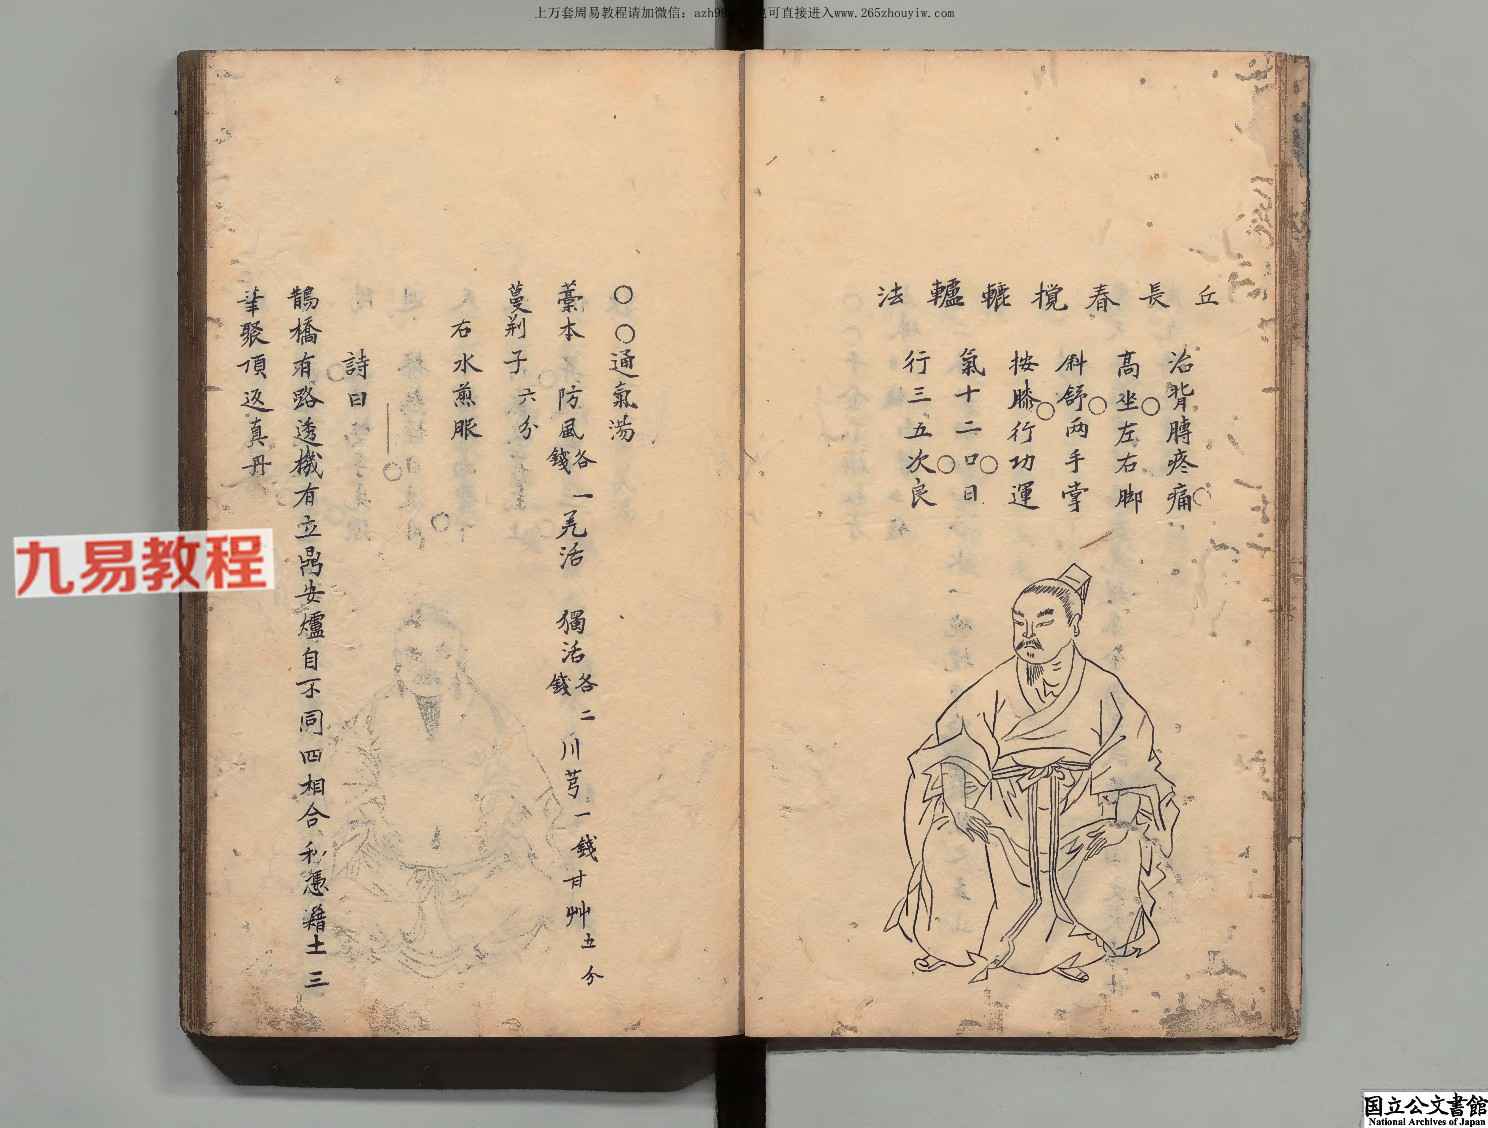 上万套周易教程请加微信：azh9 也可直接进入www.265zhouyiw.com
丘長春攪轆轤法
治背膊疼痛
高坐左右脚
斜舒兩手掌
按膝行功運
氣十二口日
行三五次良
○○通氣湯
藁本 防風各一錢 羌活 獨活各二錢 川芎一錢 甘艸五分
蔓荆子六分
右水煎服
詩曰
鵲橋有路透機有立鼎安爐自不同四相合和憑藉土三
華聚頂返真丹
九易教程
国立公文書館
National Archives of Japan